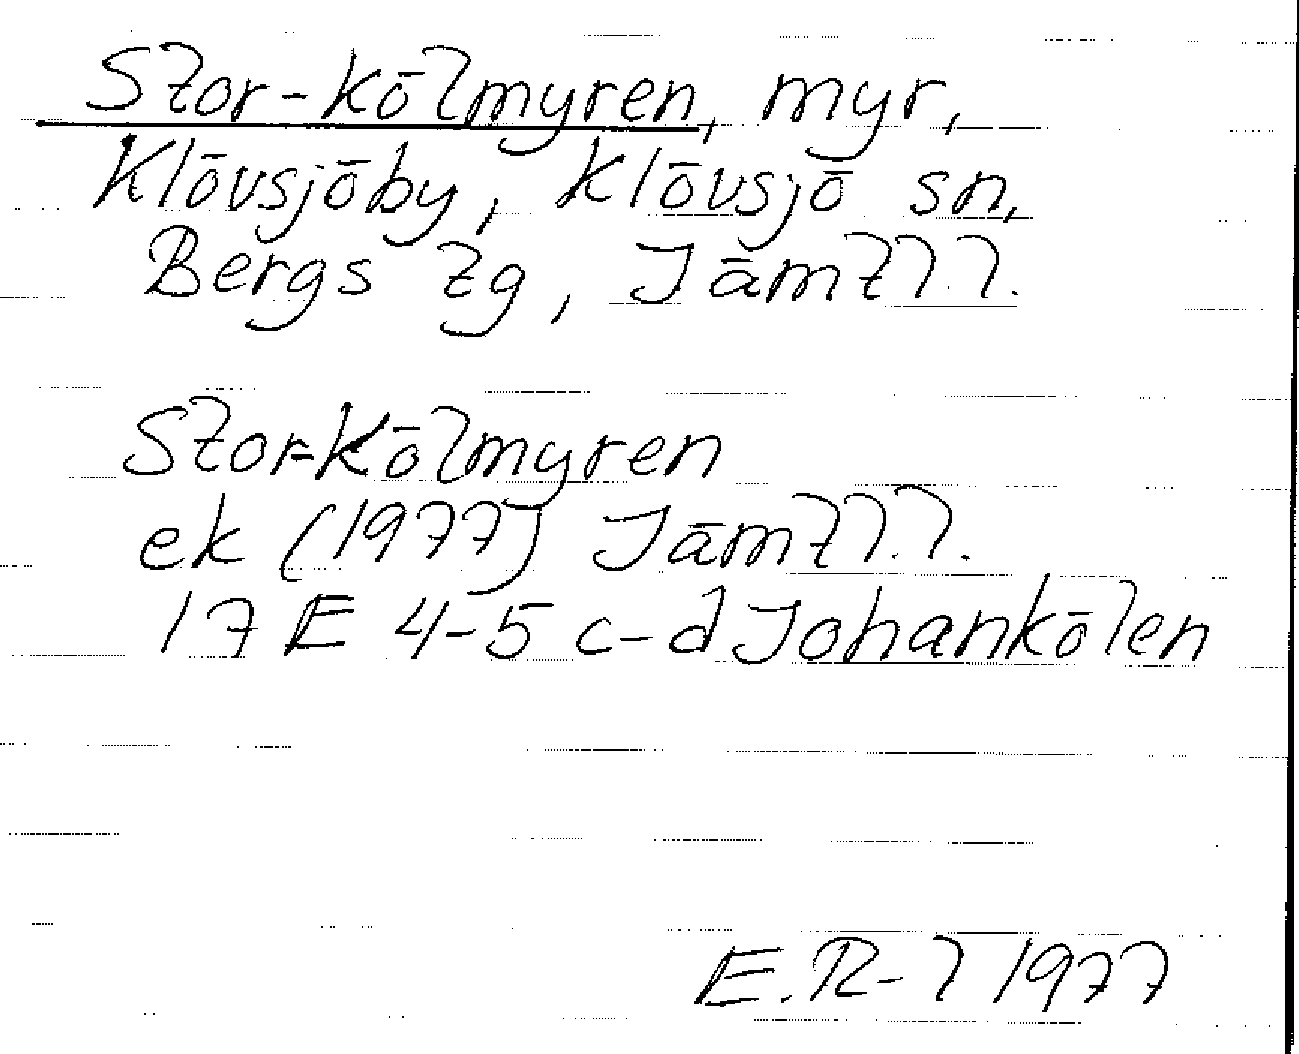 Stor-Kölmyren, myr,
Klövsjöby, Klövsjö sn,
Bergs tg, Jämtl l.
Stor-Kölmyren
ek (1977) Jämtl. l.
17 E 4-5 c-d Johankölen
E.R-l 1977